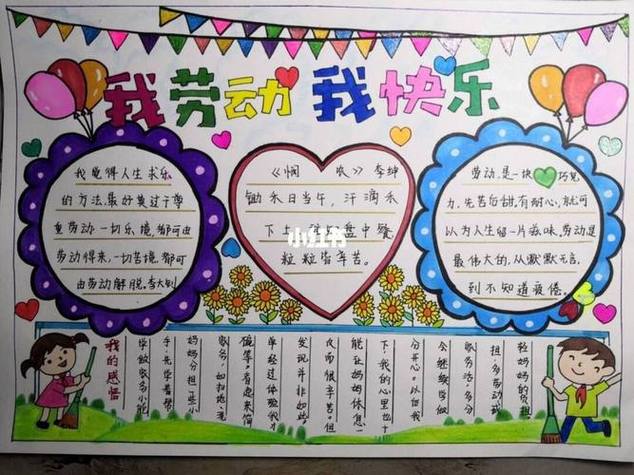 我劳动 我快乐
我觉得人生求乐
的方法,最好莫过于尊
重劳动。一切乐境,都可由
劳动得来,一切苦境,都可
由劳动解脱。李大钊
《悯 农》 李绅
锄禾日当午,汗滴禾
下土
盘中餐
粒粒皆辛苦。
小红书
劳动,是一块 巧克
力,先苦后甜,有耐心,就可
以为人生留一片滋味,劳动是
最伟大的,从默默无言,
到不知道疲倦。
我的感悟
学做家务小能
手,先学着帮
妈妈分担一些小
家务,如扫地、洗
碗等。看起来简
单经过体验我才
发现并非如此
反而很辛苦。但
能让妈妈休息一
下,我的心里也十
分开心。从此我
会继续学做
家务活,多分
担,多劳动,减
轻妈妈的负担。